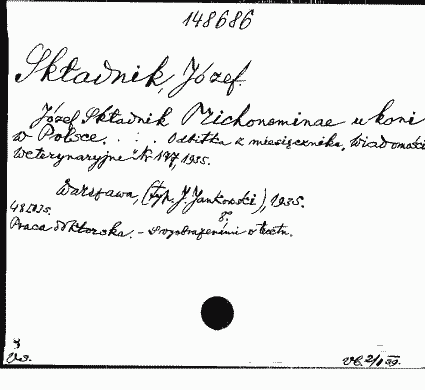 148686
Składnik, Józef.
Józef Składnik Trichoneminae u koni
w Polsce. . . . Odbitka z miesięcznika, Wiadomości
weterynaryjne Nr 177, 1935.
Warszawa, (typ. J. Jankowski), 1935.
8°.
48 [
Praca doktorska. – w tekście.